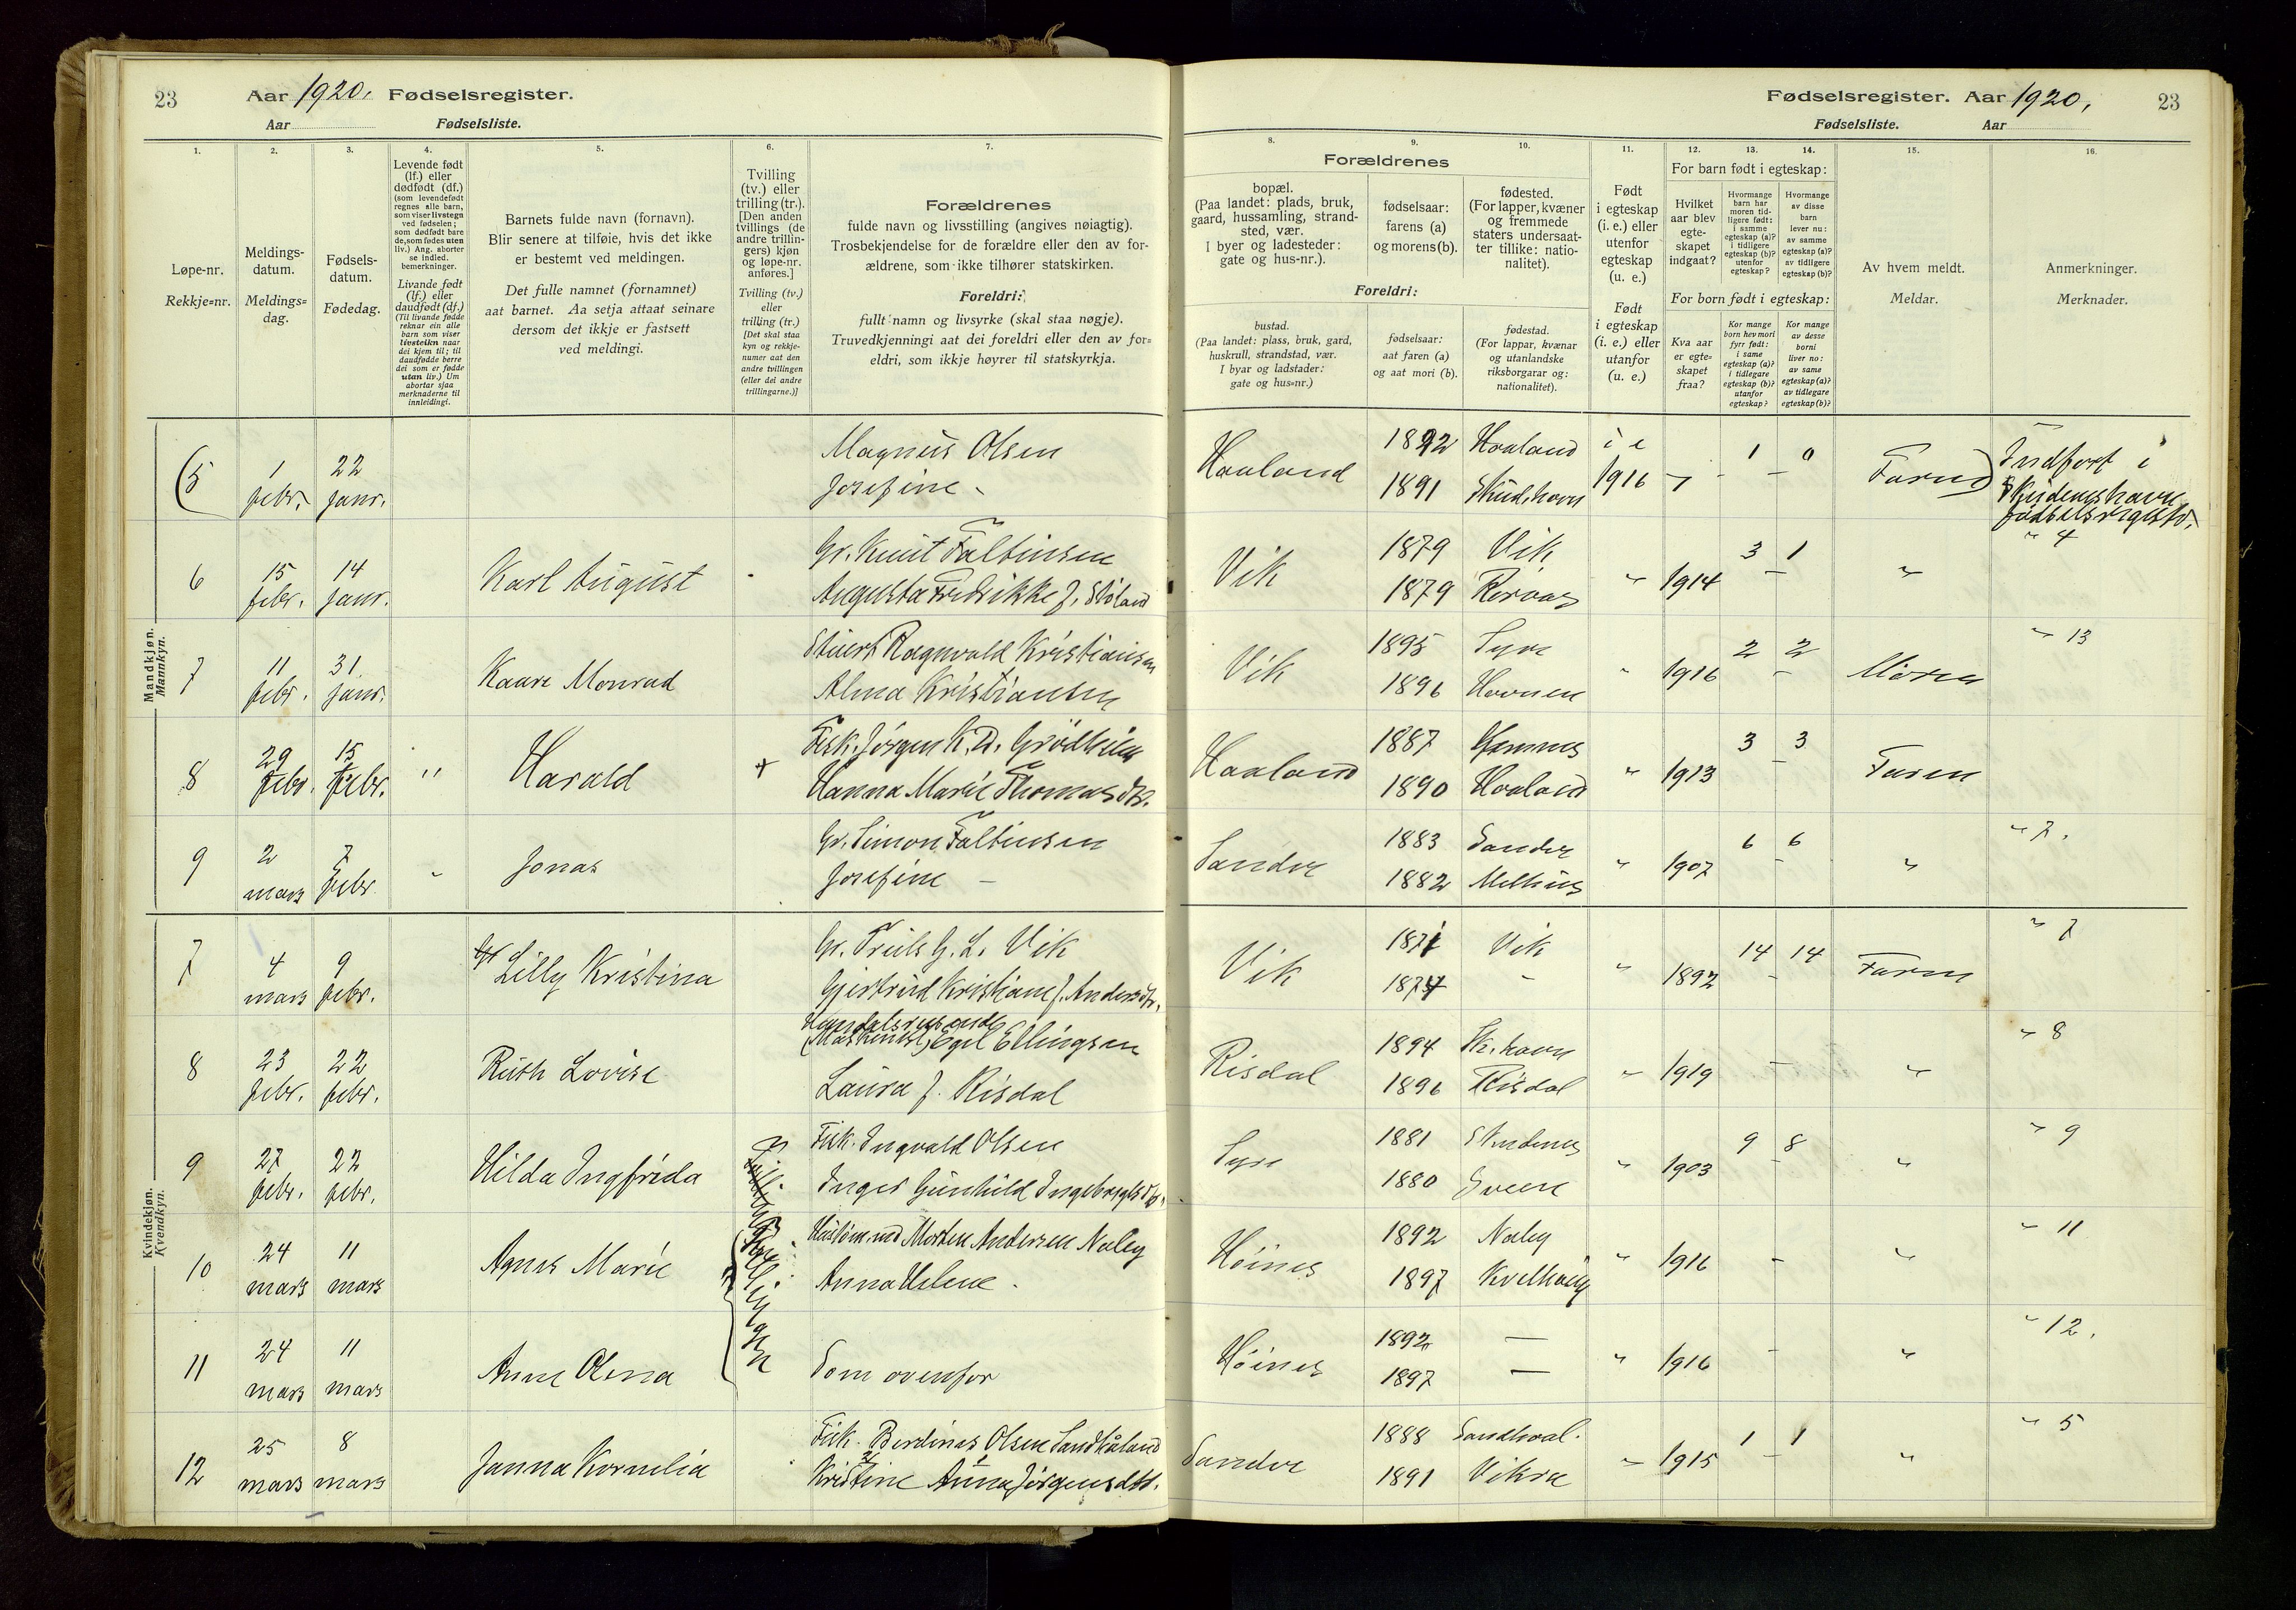 23
Aar 1920. Fødselsregister.
Aar Fødselsliste.
Fødselsregister. Aar 1920,
23
Fødselsliste. Aar
1.
Løpe-nr.
Rekkje=nr.
2.
Meldings-
datum.
Meldings=
dag.
3.
Fødsels-
datum.
Fødedag.
4.
Levende født
(lf.) eller
dødfødt (df.)
(som levendefødt
regnes alle barn,
som viser livstegn
ved fødselen;
som dødfødt bare
de, som fødes uten
liv.) Ang. aborter
se indled.
bemerkninger.
Livande født
(lf.) eller
daudfødt (df.)
(Til livande fødde
reknar ein alle
barn som viser
livsteikn naar
dei kjem til; til
daudfødde berre
dei som er fødde
utan liv.) Um
abortar sjaa
merknaderne til
innleidingi.
5.
Barnets fulde navn (fornavn).
Blir senere at tilføie, hvis det ikke
er bestemt ved meldingen.
Det fulle namnet (fornamnet)
aat barnet. Aa setja attaat seinare
dersom det ikkje er fastsett
ved meldingi.
6.
Tvilling
(tv.) eller
trilling (tr.).
[Den anden
tvillings (de
andre trillin-
gers) kjøn
og løpe-nr.
anføres.]
Tvilling (tv.)
eller
trilling (tr.)
[Det skal staa
kyn og rekkje-
numer aat den
andre tvillingen
(eller dei andre
trillingarne.)]
7.
Forældrenes
fulde navn og livsstilling (angives nøiagtig).
Trosbekjendelse for de forældre eller den av for-
ældrene, som ikke tilhører statskirken.
Foreldri:
fullt namn og livsyrke (skal staa nøgje).
Truvedkjenningi aat dei foreldri eller den av for-
eldri, som ikkje høyrer til statskyrkja.
Forældrenes
8.
bopæl.
(Paa landet: plads, bruk,
gaard, hussamling, strand-
sted, vær.
I byer og ladesteder:
gate og hus-nr.).
9.
fødselsaar:
farens (a)
og morens (b).
10.
fødested.
(For lapper, kvæner
og fremmede
staters undersaat-
ter tillike: natio-
nalitet).
Foreldri:
bustad.
(Paa landet: plass, bruk, gard,
huskrull, strandstad, vær.
I byar og ladstader:
gate og hus=nr.)
fødselsaar:
aat faren (a)
og aat mori (b).
fødestad.
(For lappar, kvænar
og utanlandske
riksborgarar og:
nationalitet).
11.
Født
i egteskap
(i. e.) eller
utenfor
egteskap
(u. e.)
Født
i egteskap
(i. e.) eller
utanfor
(u. e.)
12. 13. 14.
For barn født i egteskap:
Hvilket
aar blev
egte-
skapet
indgaat?
Hvormange
barn har
moren tid-
ligere født:
i samme
egteskap (a)?
i tidligere
egteskap (b)?
utenfor
egteskap?
Hvormange
av disse
barn
lever nu:
av samme
egteskap (a)?
av tidligere
egteskap (b)?
For born født i egteskap:
Kva aar
er egte=
skapet
fraa?
Kor mange
born hev mori
fyrr født:
i same
egteskap (a)?
i tidlegare
egteskap (b)?
utanfor
egteskap?
Kor mange
av desse
borni
liver no:
av same
egteskap (a)?
av tidlegare
egteskap (b)?
15.
Av hvem meldt.
Meldar.
16.
Anmerkninger.
Merknader.
Mandkjøn.
Mannkyn.
(5 1 febr. 22 janr. Magnus Olsen Haaland 1892 Haaland i e 1 0 Faren) Indført i
Josefine - 1891 Skud.havn 1916 Skudeneshavn
fødselsregister.
6 15 febr. 14 janr. Karl August Gr. Knut Faltinsen Vik 1879 Vik " 1914 3 1 " " 4
Augusta Fredrikke J. Støland 1879 Rørvas
7 11 febr. 31 janr. Kaare Monrad Stuert Ragnvald Kristiansen Vik 1895 Syre " 1916 2 2 Moren " 13
Alma Kristiansen 1896 Havnen
8 29 febr. 15 febr. " Harald Fisk. Jørgen K. D. Grødheim Haaland 1887 " 1913 3 3 Faren
Hanna Marie Thomasdtr. 1890 Haaland
9 2 mars 7 febr. " Jonas Gr. Simon Faltinsen Sandve 1883 Sandve " 1907 6 6 " " 7.
Josefine - 1882 Melhus
Kvindekjøn.
Kvendkyn.
7 4 mars 9 febr. Lilly Kristina Gr. Truls G. L. Vik Vik 1871 Vik " 1892 14 14 Faren " 7
Gjertrud Kristiane J. Andersdtr. 1874 -
8 23 febr. 22 febr. Ruth Lovise Handelsreisende
(Maskinist) Egil Ellingsen Risdal 1894 Sk.havn " 1919 - " " 8
Laura J. Risdal 1896 Risdal
9 27 febr. 22 febr. Hilda Ingfrida Fisk. Ingvald Olsen Syre 1881 Skudenes " 1903 9 8 " " 9
Inger Gunhild Ingebrigtsdtr. 1880 Sveen
10 24 mars 11 mars Agnes Marie Morten Andersen Naley Høines 1892 Naley " 1916 - " " 11
Anna Helene - 1897 Kvelhaug
11 24 mars 11 mars Anne Olena Som ovenfor Høines 1892 — " 1916 - " " 12.
1897 —
12 25 mars 8 mars Janna Kornelia Fisk. Berdines Olsen Sandhåland Sandve 1888 Sandhaal. " 1915 1 1 " " 5
Kristine Anna Jørgensdtr. 1891 Vikra